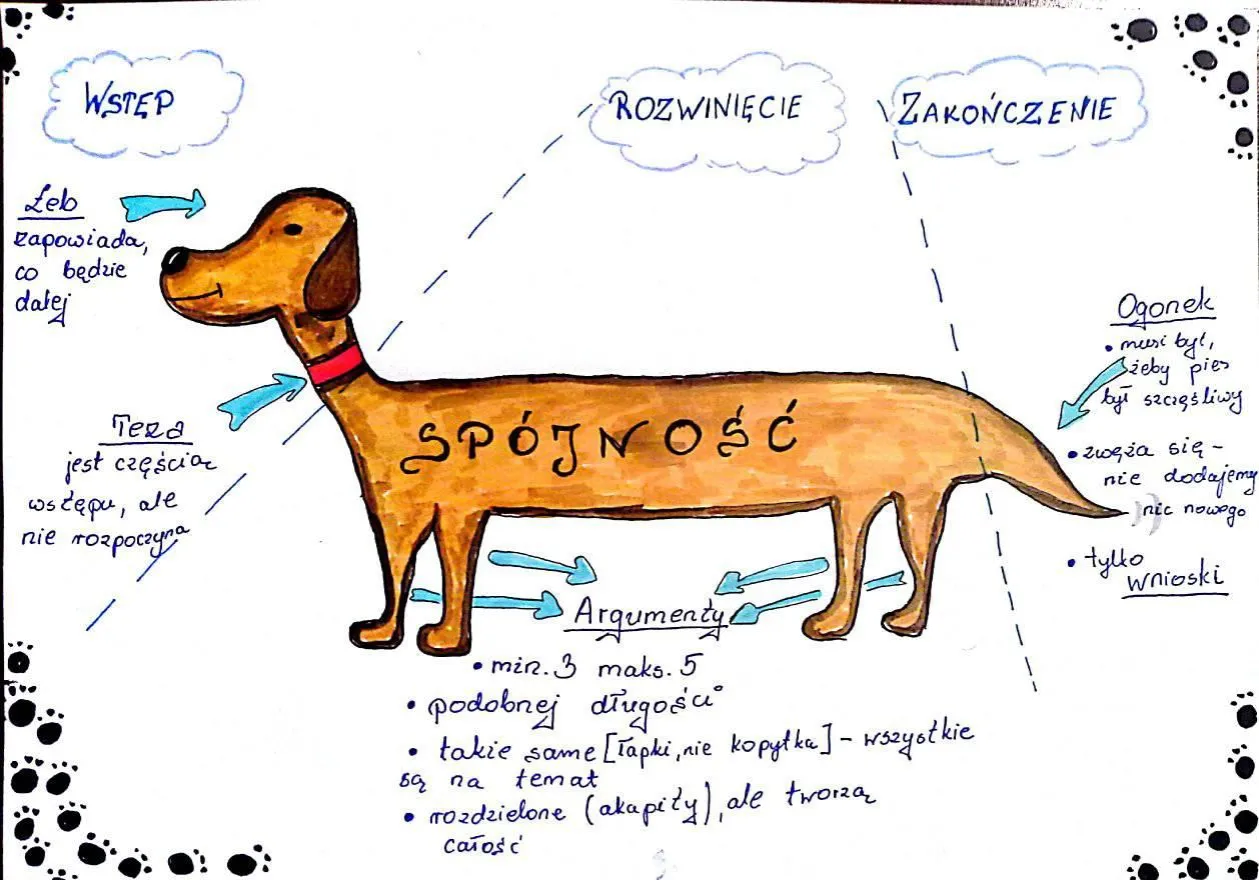 WSTĘP
ROZWINIĘCIE
ZAKOŃCZENIE
Łeb
zapowiada,
co będzie
dalej
Teza
jest częścią
wstępu, ale
nie rozpoczyna
SPÓJNOŚĆ
Ogonek
• musi być,
żeby pies
był szczęśliwy
• zwęża się -
nie dodajemy
nic nowego
• tylko
wnioski
Argumenty
• min. 3 maks. 5
• podobnej długości
• takie same [łapki, nie kopytka] - wszystkie
są na temat
• rozdzielone (akapity), ale tworzą
całość